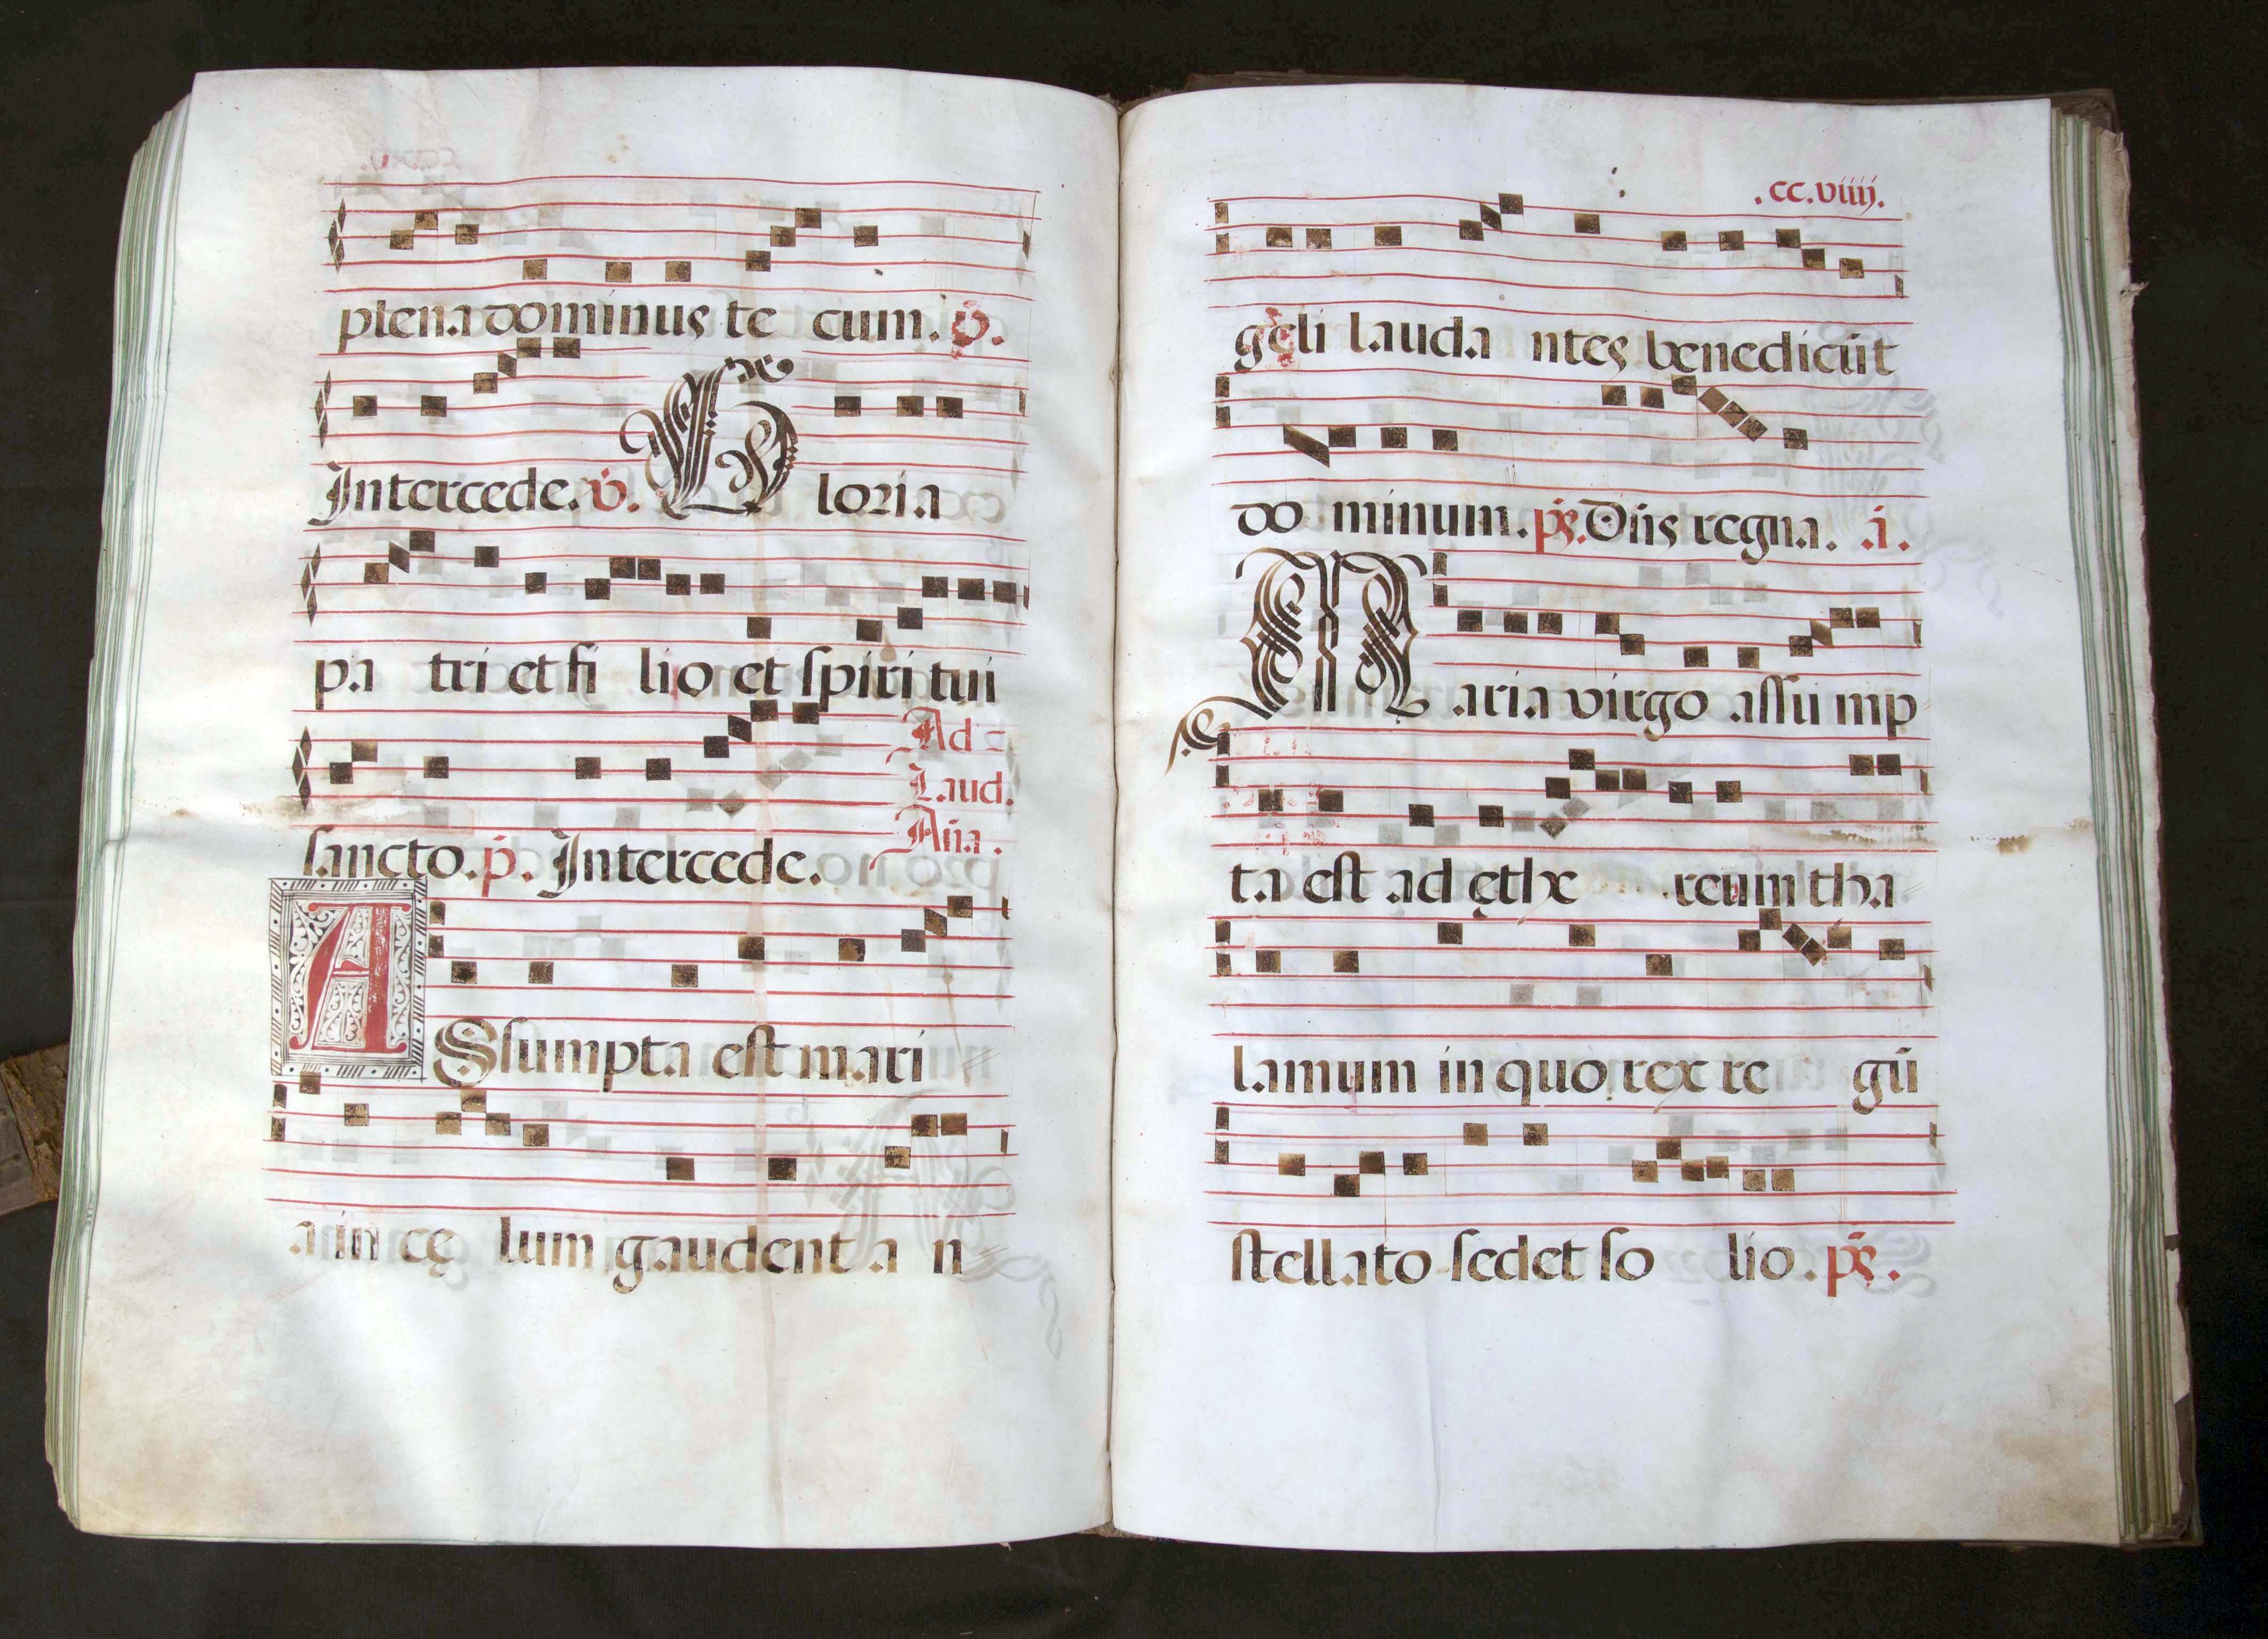 plena dominus te cum. ℣.
Intercede. ℣. Gloria
pa tri et fi lio et ſpiri tui
Ad
Laud.
Añа.
ſancto. p̃. Intercede.
ASſumpta eſt mari
a in cę lum gaudent a n
.cc.viiij.
geli lauda ntes benedicūt
do minum. p̃s. Dñs regna. .i.
Maria virgo aſſu mp
ta eſt ad ęthe reum tha
lamum in quo rex re gū
ſtellato ſedet ſo lio. p̃s.